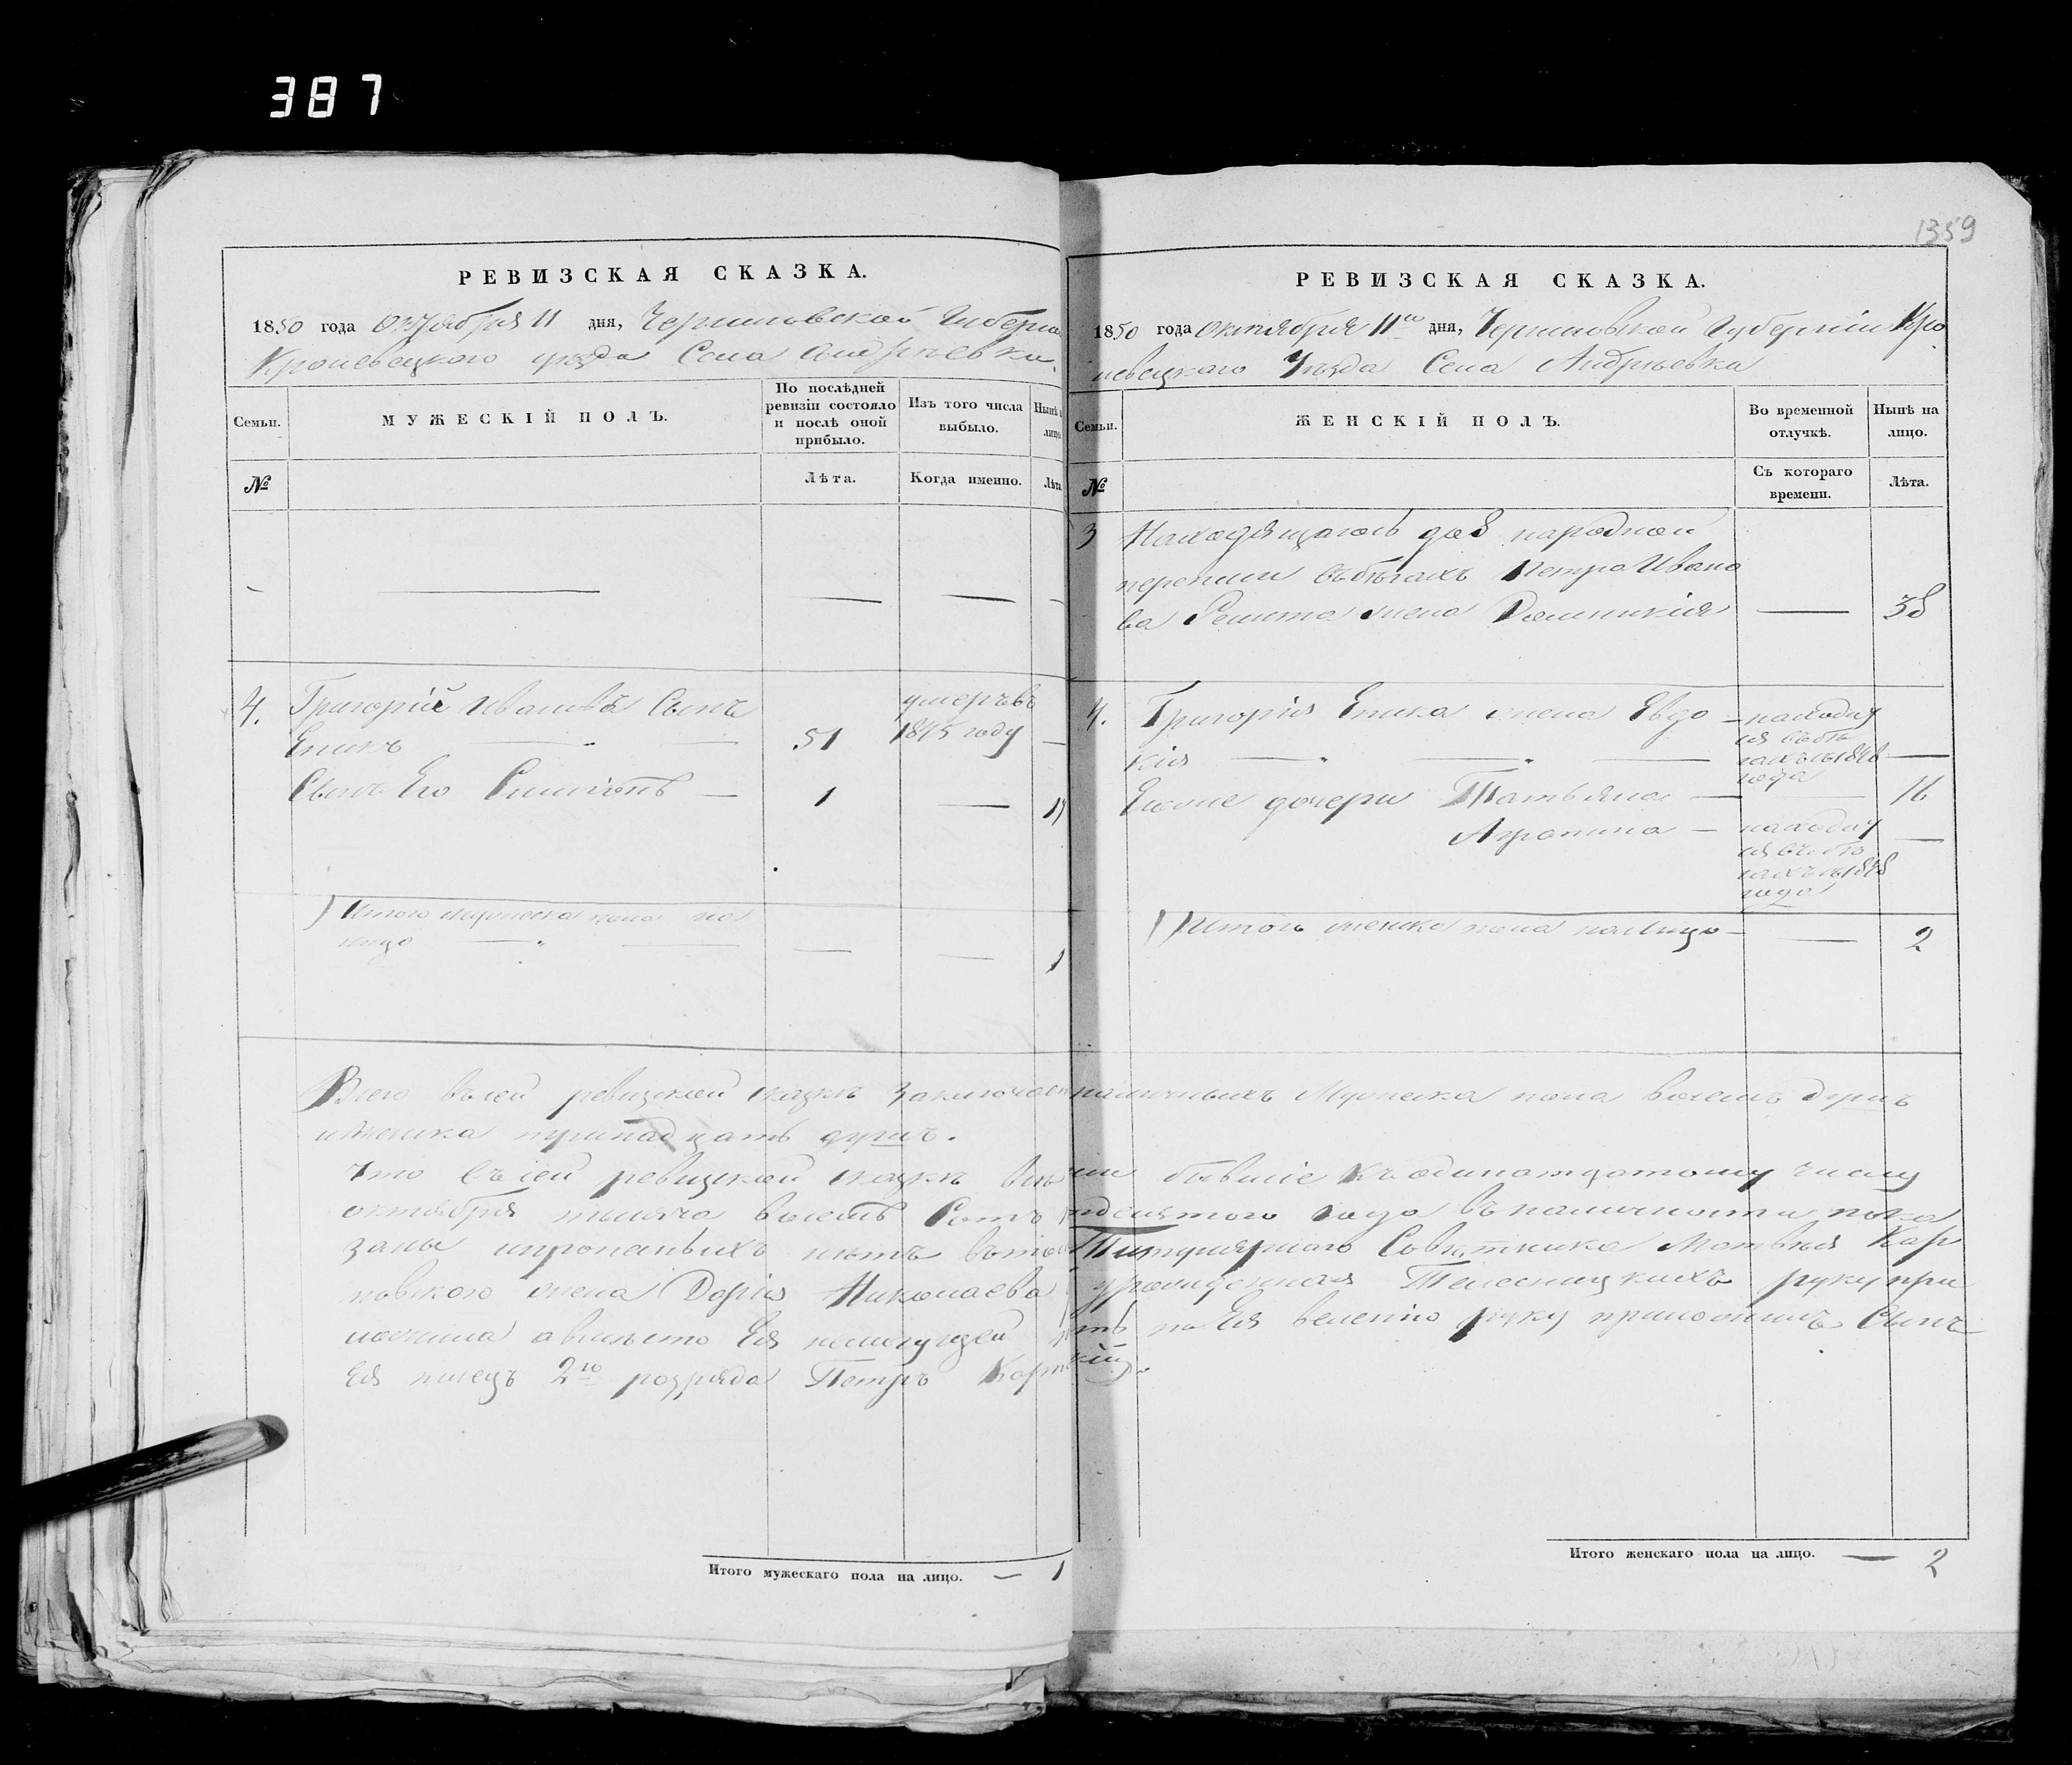 387
1359
РЕВИЗСКАЯ СКАЗКА.
1850 года Октября 11 дня, Черниговской Губерни
Кролевецкого уезда Села Андреевки.
Семьи.
МУЖЕСКІЙ ПОЛЪ.
По послѣдней ревизіи состояло и послѣ оной прибыло.
Изъ того числа выбыло.
Нынѣ
лицо
№
Лѣта.
Когда именно.
Лѣта
4. Григорій Ивановъ Сынъ умеръ въ
51 1845 году
Сынъ Его 1 — 19
Итого мужеска пола на
лицо — — 1
РЕВИЗСКАЯ СКАЗКА.
1850 года Октября 11го дня, Черниговской Губерніи Кро
левецкаго Уѣзда Села Андрѣевки
Семьи.
ЖЕНСКІЙ ПОЛЪ.
Во временной отлучкѣ.
Нынѣ на лицо.
№
Съ котораго времени.
Лѣта.
3 Находящагось до 8 народной
переписи въ бѣгахъ Петра Ивано
ва жена — 38
4. Григорія жена Евдо — находит
кія ся въ бѣ
гахъ съ 1848 —
года
дочери Татьяна — 16
— находит —
ся въ бѣ
гахъ съ 1848
года
Итого женска пола на лицо — — 2
Всего въ сей ревизской сказкѣ заключает наличныхъ Мужеска пола восемь душъ
женска тринадцать душъ.
Что въ сей ревизской сказкѣ всѣ бывшіе къ одинатцатому числу
октября тысяча восемь Сотъ пдесятого года въ наличности пока
заны и прописныхъ нѣтъ въ томъ Титулярнаго Совѣтника Матвѣя Кар
жена Дарія Николаева урожденная руку при
ложила а вмѣсто Ея по Ея велению руку приложилъ Сынъ
Ея писецъ 2го разряда Петръ
Итого мужескаго пола на лицо. — 1
Итого женскаго пола на лицо. — 2